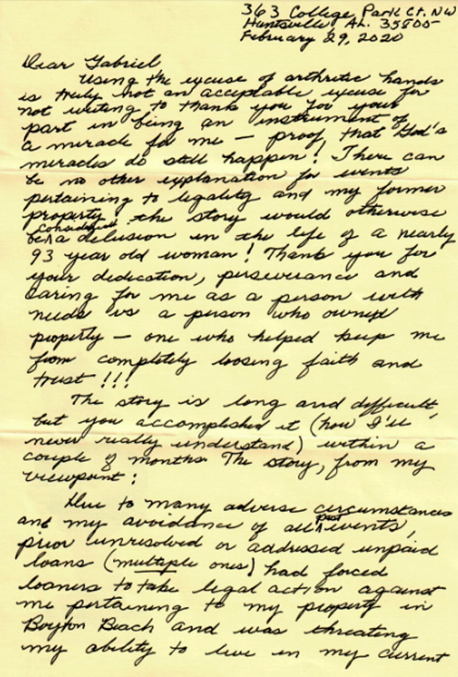 363 College Park Ct. NW
Huntsville, AL. 35805-
February 29, 2020
Dear Gabriel
Using the excuse of arthritic hands
is truly not an acceptable excuse for
not writing to thank you for your
part in being an instrument of
a miracle for me — proof that God's
miracles do still happen! There can
be no other explanation for events
pertaining to legality and my former
property, the story would otherwise
be a delusion in the life of a nearly
93 year old woman! Thank you for
your dedication, perseverance and
caring for me as a person with
needs vs a person who owned
property — one who helped keep me
from completely loosing faith and
trust!!!
The story is long and difficult
but you accomplished it (how I'll
never really understand) within a
couple of months. The story, from my
viewpoint:
Due to many adverse circumstances
and my avoidance of all past events,
prior unresolved or addressed unpaid
loans (multiple ones) had forced
loaners to take legal action against
me pertaining to my property in
Boyton Beach and was threating
my ability to live in my current